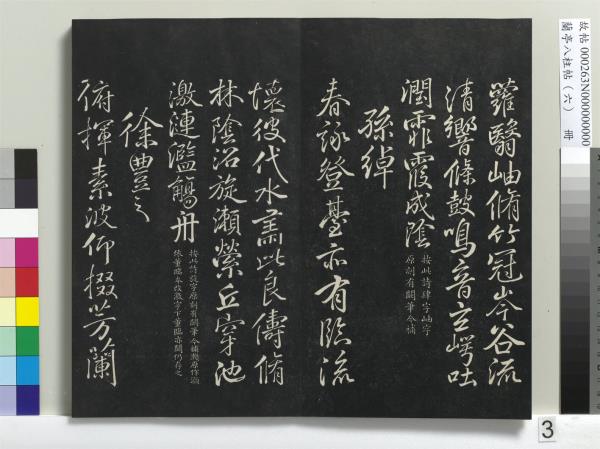 故帖 000263N000000000
蘭亭八柱帖（六） 冊
蘿翳岫脩竹冠岑谷流
清響條鼓鳴音玄崿吐
潤霏霞成陰
按此詩肆字岫字
原刻有闕筆今補
孫綽
春詠登臺亦有臨流
懷彼代水肅此良儔脩
林陰沼旋瀨縈丘穿池
激漣濫觴舟
按此詩茂字原刻有闕筆今補瀨原作
依董臨本改激字下董臨亦闕仍存之
徐豐之
俯揮素波仰掇芳蘭
3